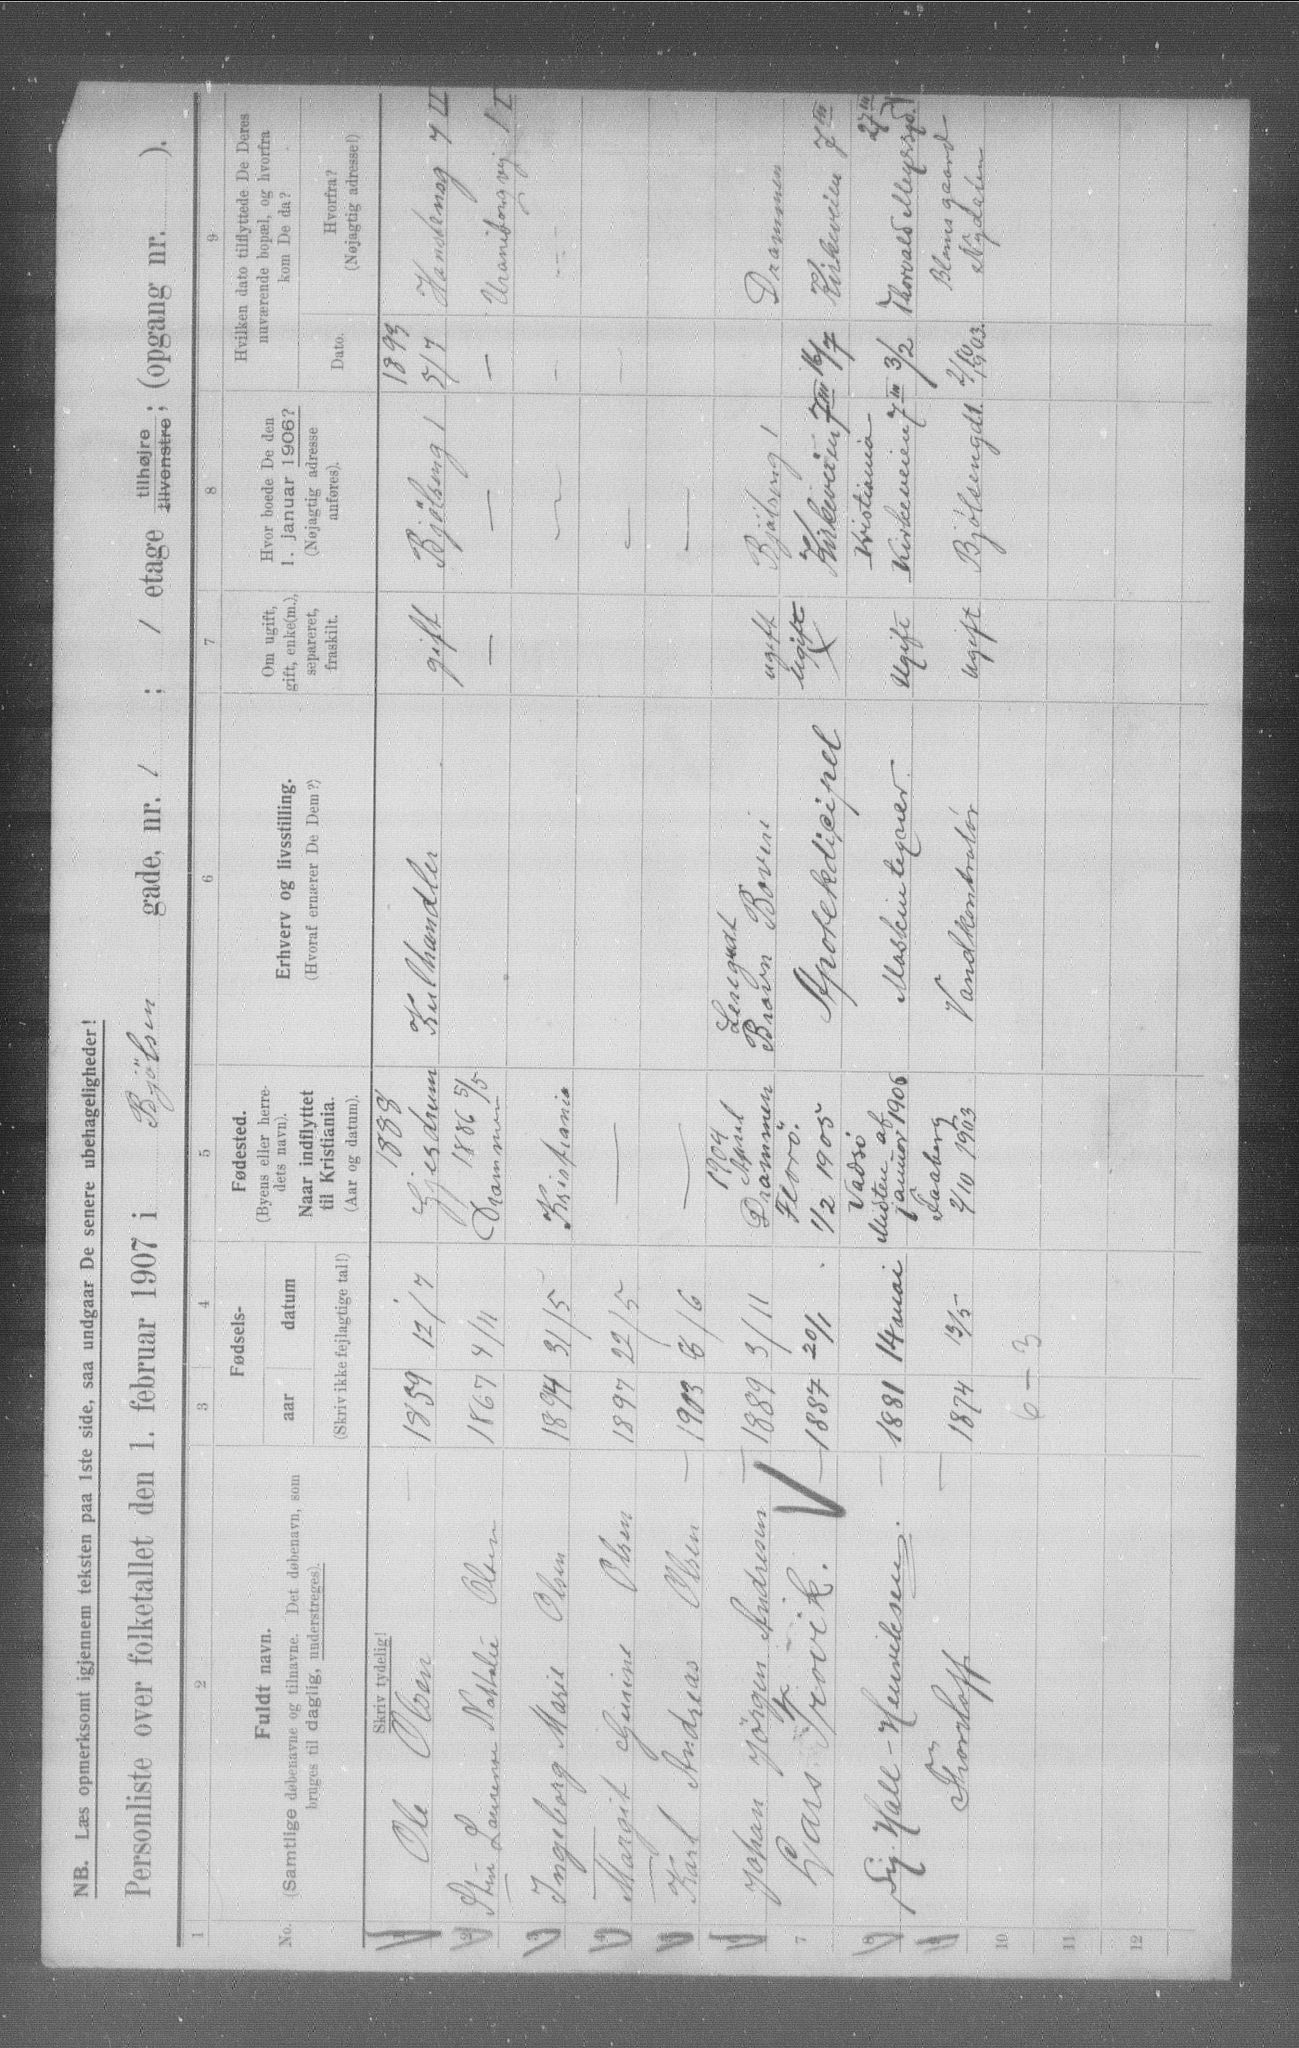 NB. Læs opmerksomt igjennem teksten paa 1ste side, saa undgaar De senere ubehageligheder!
Personliste over folketallet den 1. februar 1907 i Bjölsen gade, nr. 1 ; 1 etage tilhøjre tilvenstre; (opgang nr. ).
1 2 3 4 5 6 7 8 9
No.
Fuldt navn.
(Samtlige døbenavne og tilnavne. Det døbenavn, som
bruges til daglig, understreges).
Fødsels-
aar datum
(Skriv ikke fejlagtige tal!)
Fødested.
(Byens eller herre-
dets navn).
Naar indflyttet
til Kristiania.
(Aar og datum).
Erhverv og livsstilling.
(Hvoraf ernærer De Dem?)
Om ugift,
gift, enke(m.),
separeret,
fraskilt.
Hvor boede De den
1. januar 1906?
(Nøjagtig adresse
anføres).
Hvilken dato tilflyttede De Deres
nuværende bopæl, og hvorfra
kom De da?
Dato.
Hvorfra?
(Nøjagtig adresse!)
Skriv tydelig!
1888 1893
Ole Olsen — 1859 12/7 Gjesdrum Kulhandler gift Bjølseng 1 5/7 7 II
1886 5/5
2 Laurense Nathalie Olsen 1867 4/11 Drammen — — — Uranienborgvej 1 I
3 Ingeborg Marie Olsen 1894 31/5 Kristiania — —
4 Margit Gunine Olsen 1897 22/5 — — —
5 Karl Andreas Olsen — 1903 8/6 — —
1904 April
6 Johan Jörgen Andresen — 1889 3/11 Drammen Brown Boveri ugift Bjølseng 1 Drammen
7 Lars Grovik. — 1887 20/1 Florö. 1/2 1905 Apotekdicipel Ugift Kirkeveien 7 III 16/7 Kirkeveien 7 III
Kristiania 27 III
Sig. Hall-Henriksen. — 1881 14 mai Vadsö Midten af januar 1906 Maskintegner Ugift Kirkeveien 7 III 3/2 Thorvald Meyersgd.
Thorhoff — 1874 13/5 Faaberg 2/10 1903 Vandkontrolör ugift Bjölsengdt. 2/10 1903. Nydalen
10 6 – 3
11
12